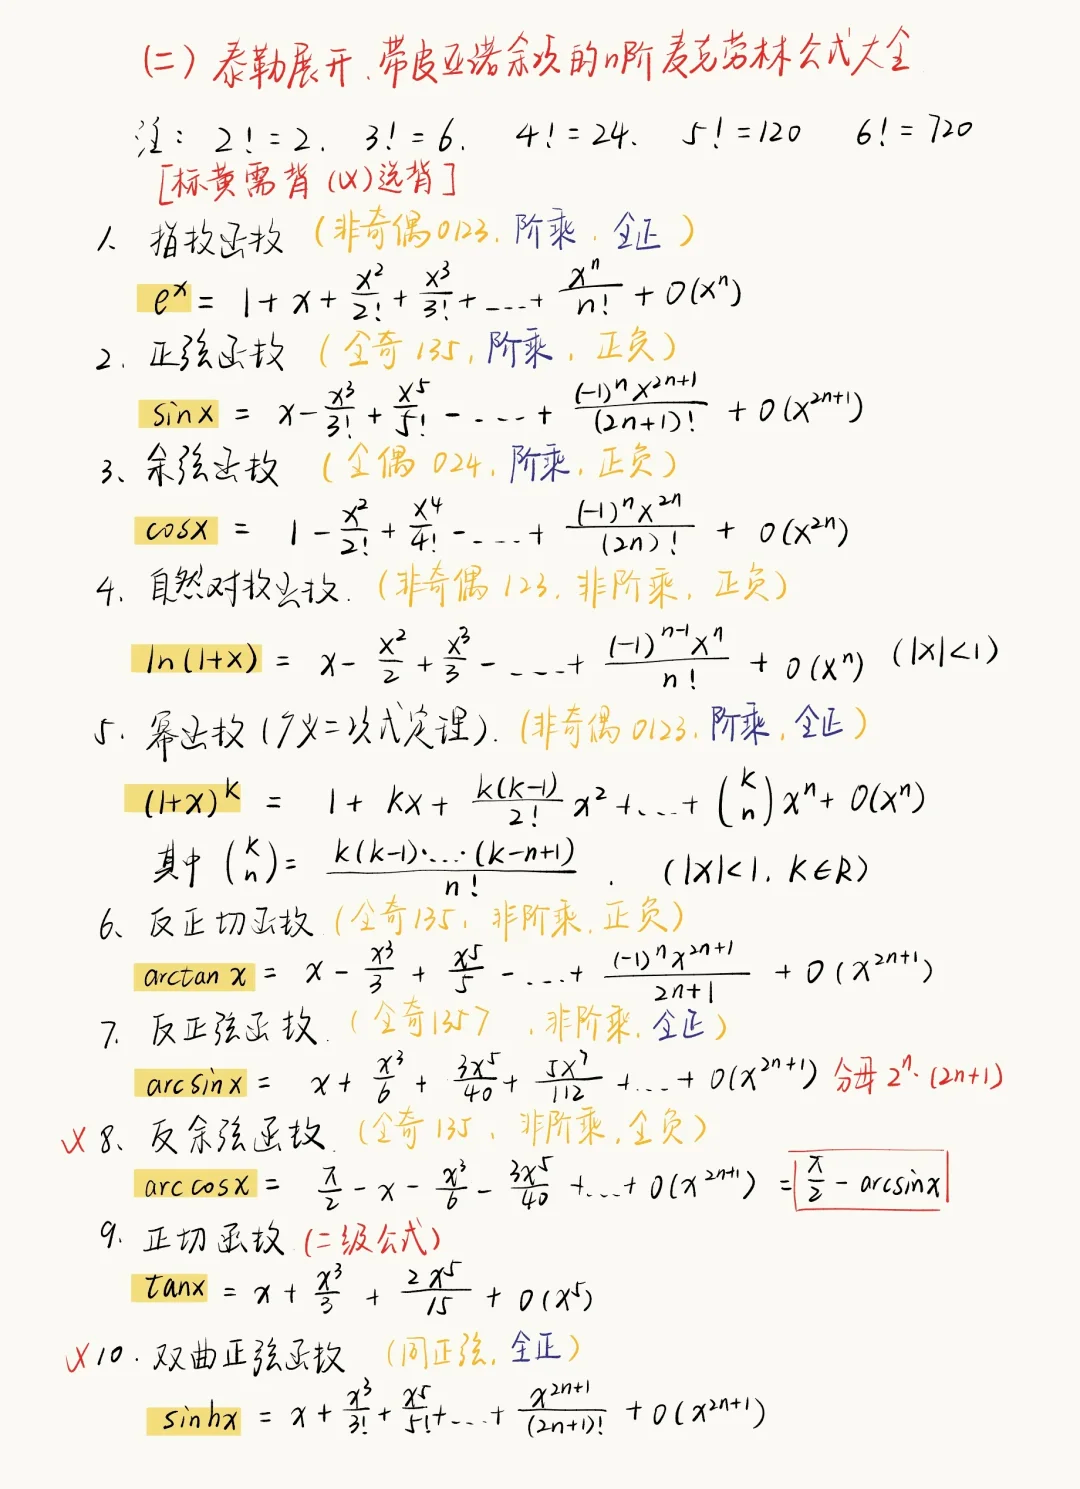 (二) 泰勒展开、带皮亚诺余项的n阶麦克劳林公式大全
注: 2! = 2、 3! = 6、 4! = 24、 5! = 120 6! = 720
[标黄需背 (✗) 选背]
1、指数函数 (非奇偶0123、阶乘、全正)
e^x = 1 + x + x^2/2! + x^3/3! + ... + x^n/n! + o(x^n)
2、正弦函数 (全奇135, 阶乘, 正负)
sinx = x - x^3/3! + x^5/5! - .... + (-1)^n x^{2n+1}/(2n+1)! + o(x^{2n+1})
3、余弦函数 (全偶 024, 阶乘, 正负)
cosx = 1 - x^2/2! + x^4/4! - .... + (-1)^n x^{2n}/(2n)! + o(x^{2n})
4、自然对数函数. (非奇偶 123, 非阶乘, 正负)
ln(1+x) = x - x^2/2 + x^3/3 - .... + (-1)^{n-1} x^n/n! + o(x^n) (|x|<1)
5、幂函数 (广义二次式定理). (非奇偶0123, 阶乘, 全正)
(1+x)^k = 1 + kx + k(k-1)/2! x^2 + ... + (k n) x^n + o(x^n)
其中 (k n) = k(k-1)·...·(k-n+1)/n! . (|x|<1, k∈R)
6、反正切函数 (全奇135, 非阶乘, 正负)
arctan x = x - x^3/3 + x^5/5 - ... + (-1)^n x^{2n+1}/2n+1 + o(x^{2n+1})
7、反正弦函数. (全奇1357 , 非阶乘, 全正)
arcsinx = x + x^3/6 + 3x^5/40 + 5x^7/112 + ... + o(x^{2n+1}) 分母 2^n·(2n+1)
✗ 8、反余弦函数. (全奇135, 非阶乘, 全负)
arccosx = π/2 - x - x^3/6 - 3x^5/40 + ... + o(x^{2n+1}) = π/2 - arcsinx
9、正切函数 (二级公式)
tanx = x + x^3/3 + 2x^5/15 + o(x^5)
✗ 10. 双曲正弦函数 (同正弦, 全正)
sinhx = x + x^3/3! + x^5/5! + ... + x^{2n+1}/(2n+1)! + o(x^{2n+1})